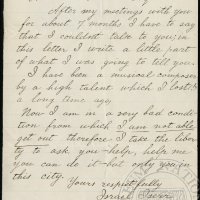 After my meetings with you
for about 7 months I have to say
that I couldent talk to you; in
this letter I write a little part
of what I was going to tell you.
I have been a musical composer
by a high talent which I lost
a long time ago,
Now I am in a very bad condi
tion from which I am not able
get out therefore I take the liber
ty to ask you - help, help me
you can do it - but only you in
this city.
Yours respectfully